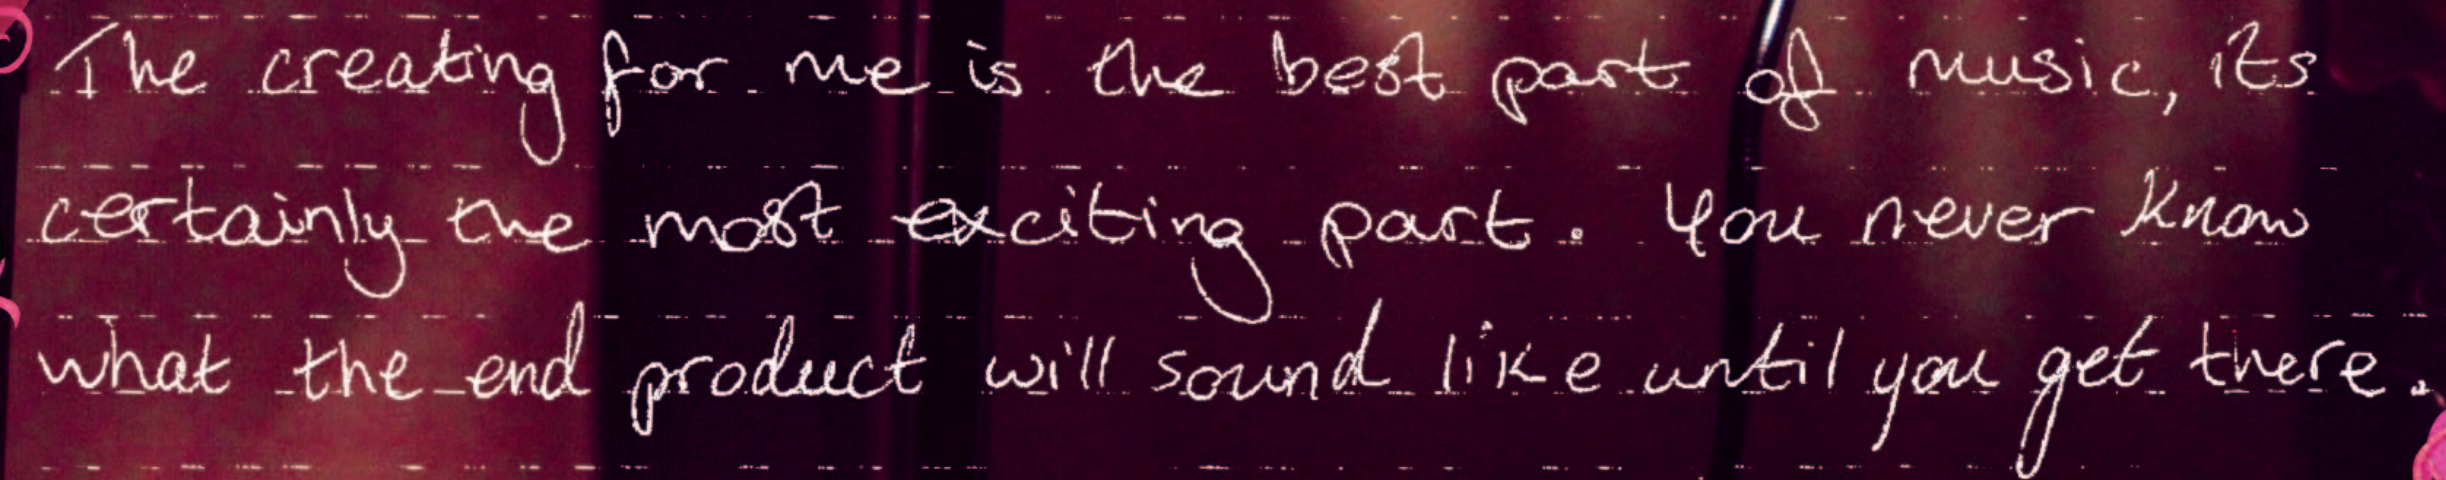 The creating for me is the best part of music, its
certainly the most exciting part. You never know
what the end product will sound like until you get there.